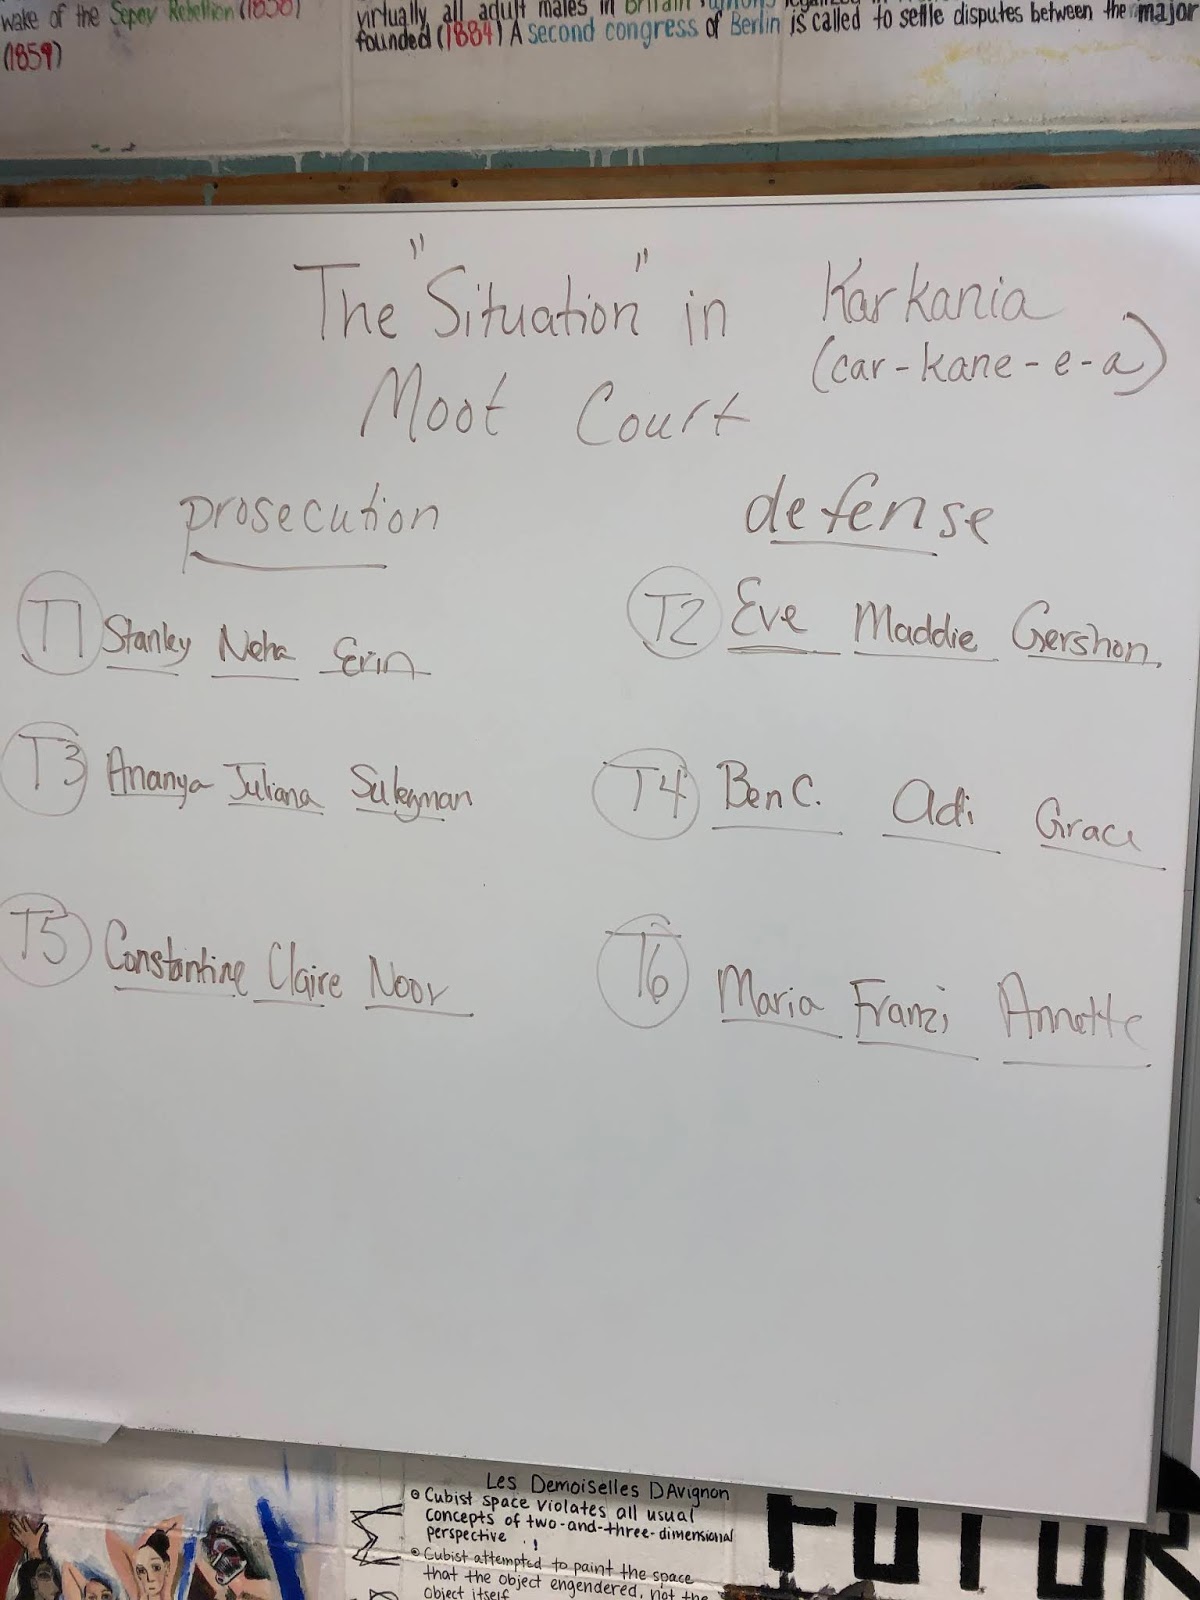 wake of the Sepoy Rebellion (1858)
(1859)
virtually all adult males in Britain
founded (1884) A second congress of Berlin is called to settle disputes between the major
The "Situation" in Karkania
(car-kane-e-a)
Moot Court
prosecution
defense
T1 Stanley Neha Erin
T2 Eve Maddie Gershon
T3 Ananya Juliana Suleyman
T4 Ben C. Adi Grace
T5 Constantine Claire Noor
T6 Maria Franzi Annette
Les Demoiselles DAvignon
Cubist space violates all usual
concepts of two-and-three-dimensional
perspective !
Cubist attempted to paint the space
that the object engendered, not the
object itself
FUTUR